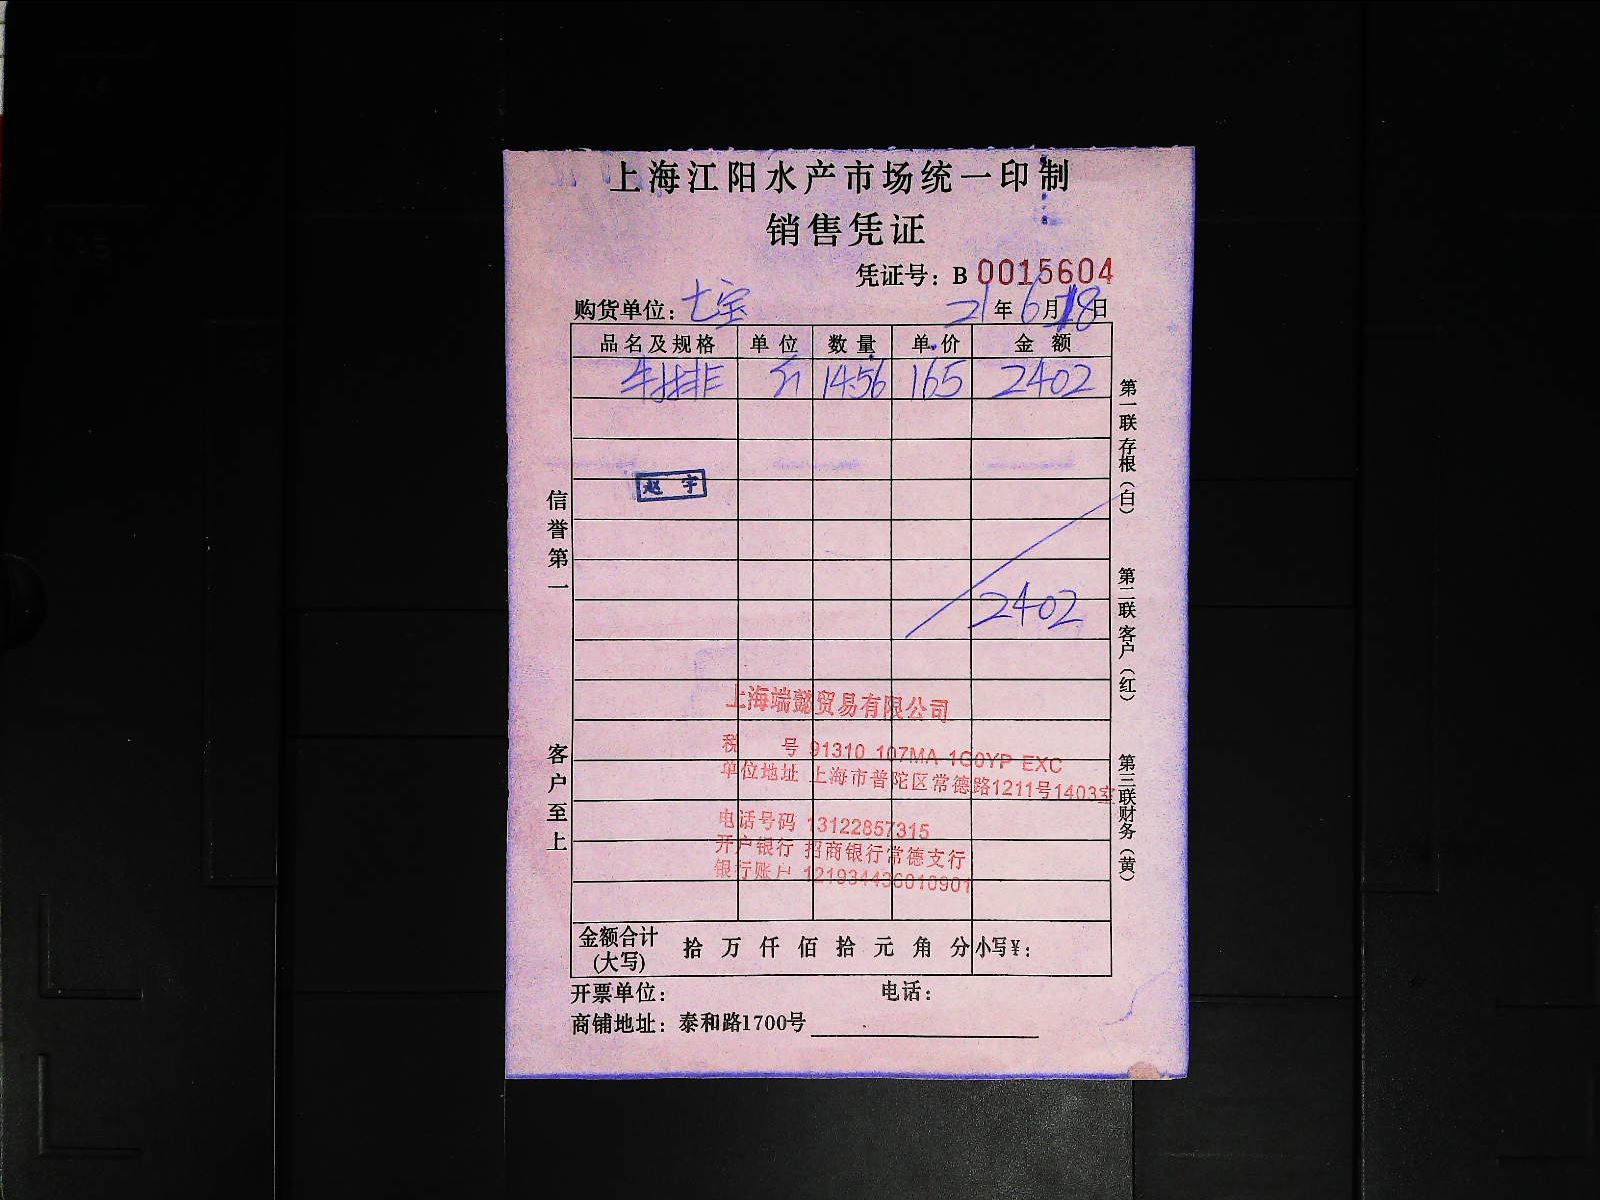 上海江阳水产市场统一印制
销售凭证
凭证号：B 0015604
购货单位：七宝 21年6月18日
品名及规格 单位 数量 单价 金额
牛排 斤 14.56 165 2402
赵宇
2402
信誉第一
客户至上
第一联存根（白）
第二联客户（红）
第三联财务（黄）
上海端懿贸易有限公司
税 号 91310 107MA 1G0YP EXC
单位地址 上海市普陀区常德路1211号1403室
电话号码 13122857315
开户银行 招商银行常德支行
银行账户 121934436010901
金额合计(大写) 拾 万 仟 佰 拾 元 角 分 小写¥：
开票单位： 电话：
商铺地址：泰和路1700号